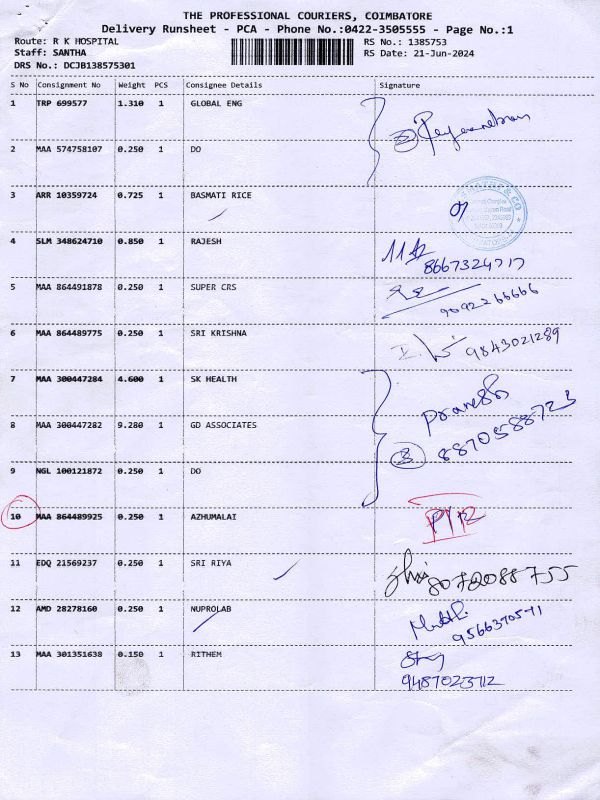 THE PROFESSIONAL COURIERS, COIMBATORE
Delivery Runsheet - PCA - Phone No.:0422-3505555 - Page No.:1
Route: R K HOSPITAL RS No.: 1385753
Staff: SANTHA RS Date: 21-Jun-2024
DRS No.: DCJB138575301
S No Consignment No Weight PCS Consignee Details Signature
1 TRP 699577 1.310 1 GLOBAL ENG
2 MAA 574758107 0.250 1 DO
3 ARR 10359724 0.725 1 BASMATI RICE
4 SLM 348624710 0.850 1 RAJESH
8667324717
5 MAA 864491878 0.250 1 SUPER CRS
9092266666
6 MAA 864489775 0.250 1 SRI KRISHNA 9843021289
7 MAA 300447284 4.600 1 SK HEALTH
8 MAA 300447282 9.280 1 GD ASSOCIATES 3 8870588723
9 NGL 100121872 0.250 1 DO
10 MAA 864489925 0.250 1 AZHUMALAI
11 EDQ 21569237 0.250 1 SRI RIYA 8072088755
12 AMD 28278160 0.250 1 NUPROLAB
9566370571
13 MAA 301351638 0.150 1 RITHEM
9487023712